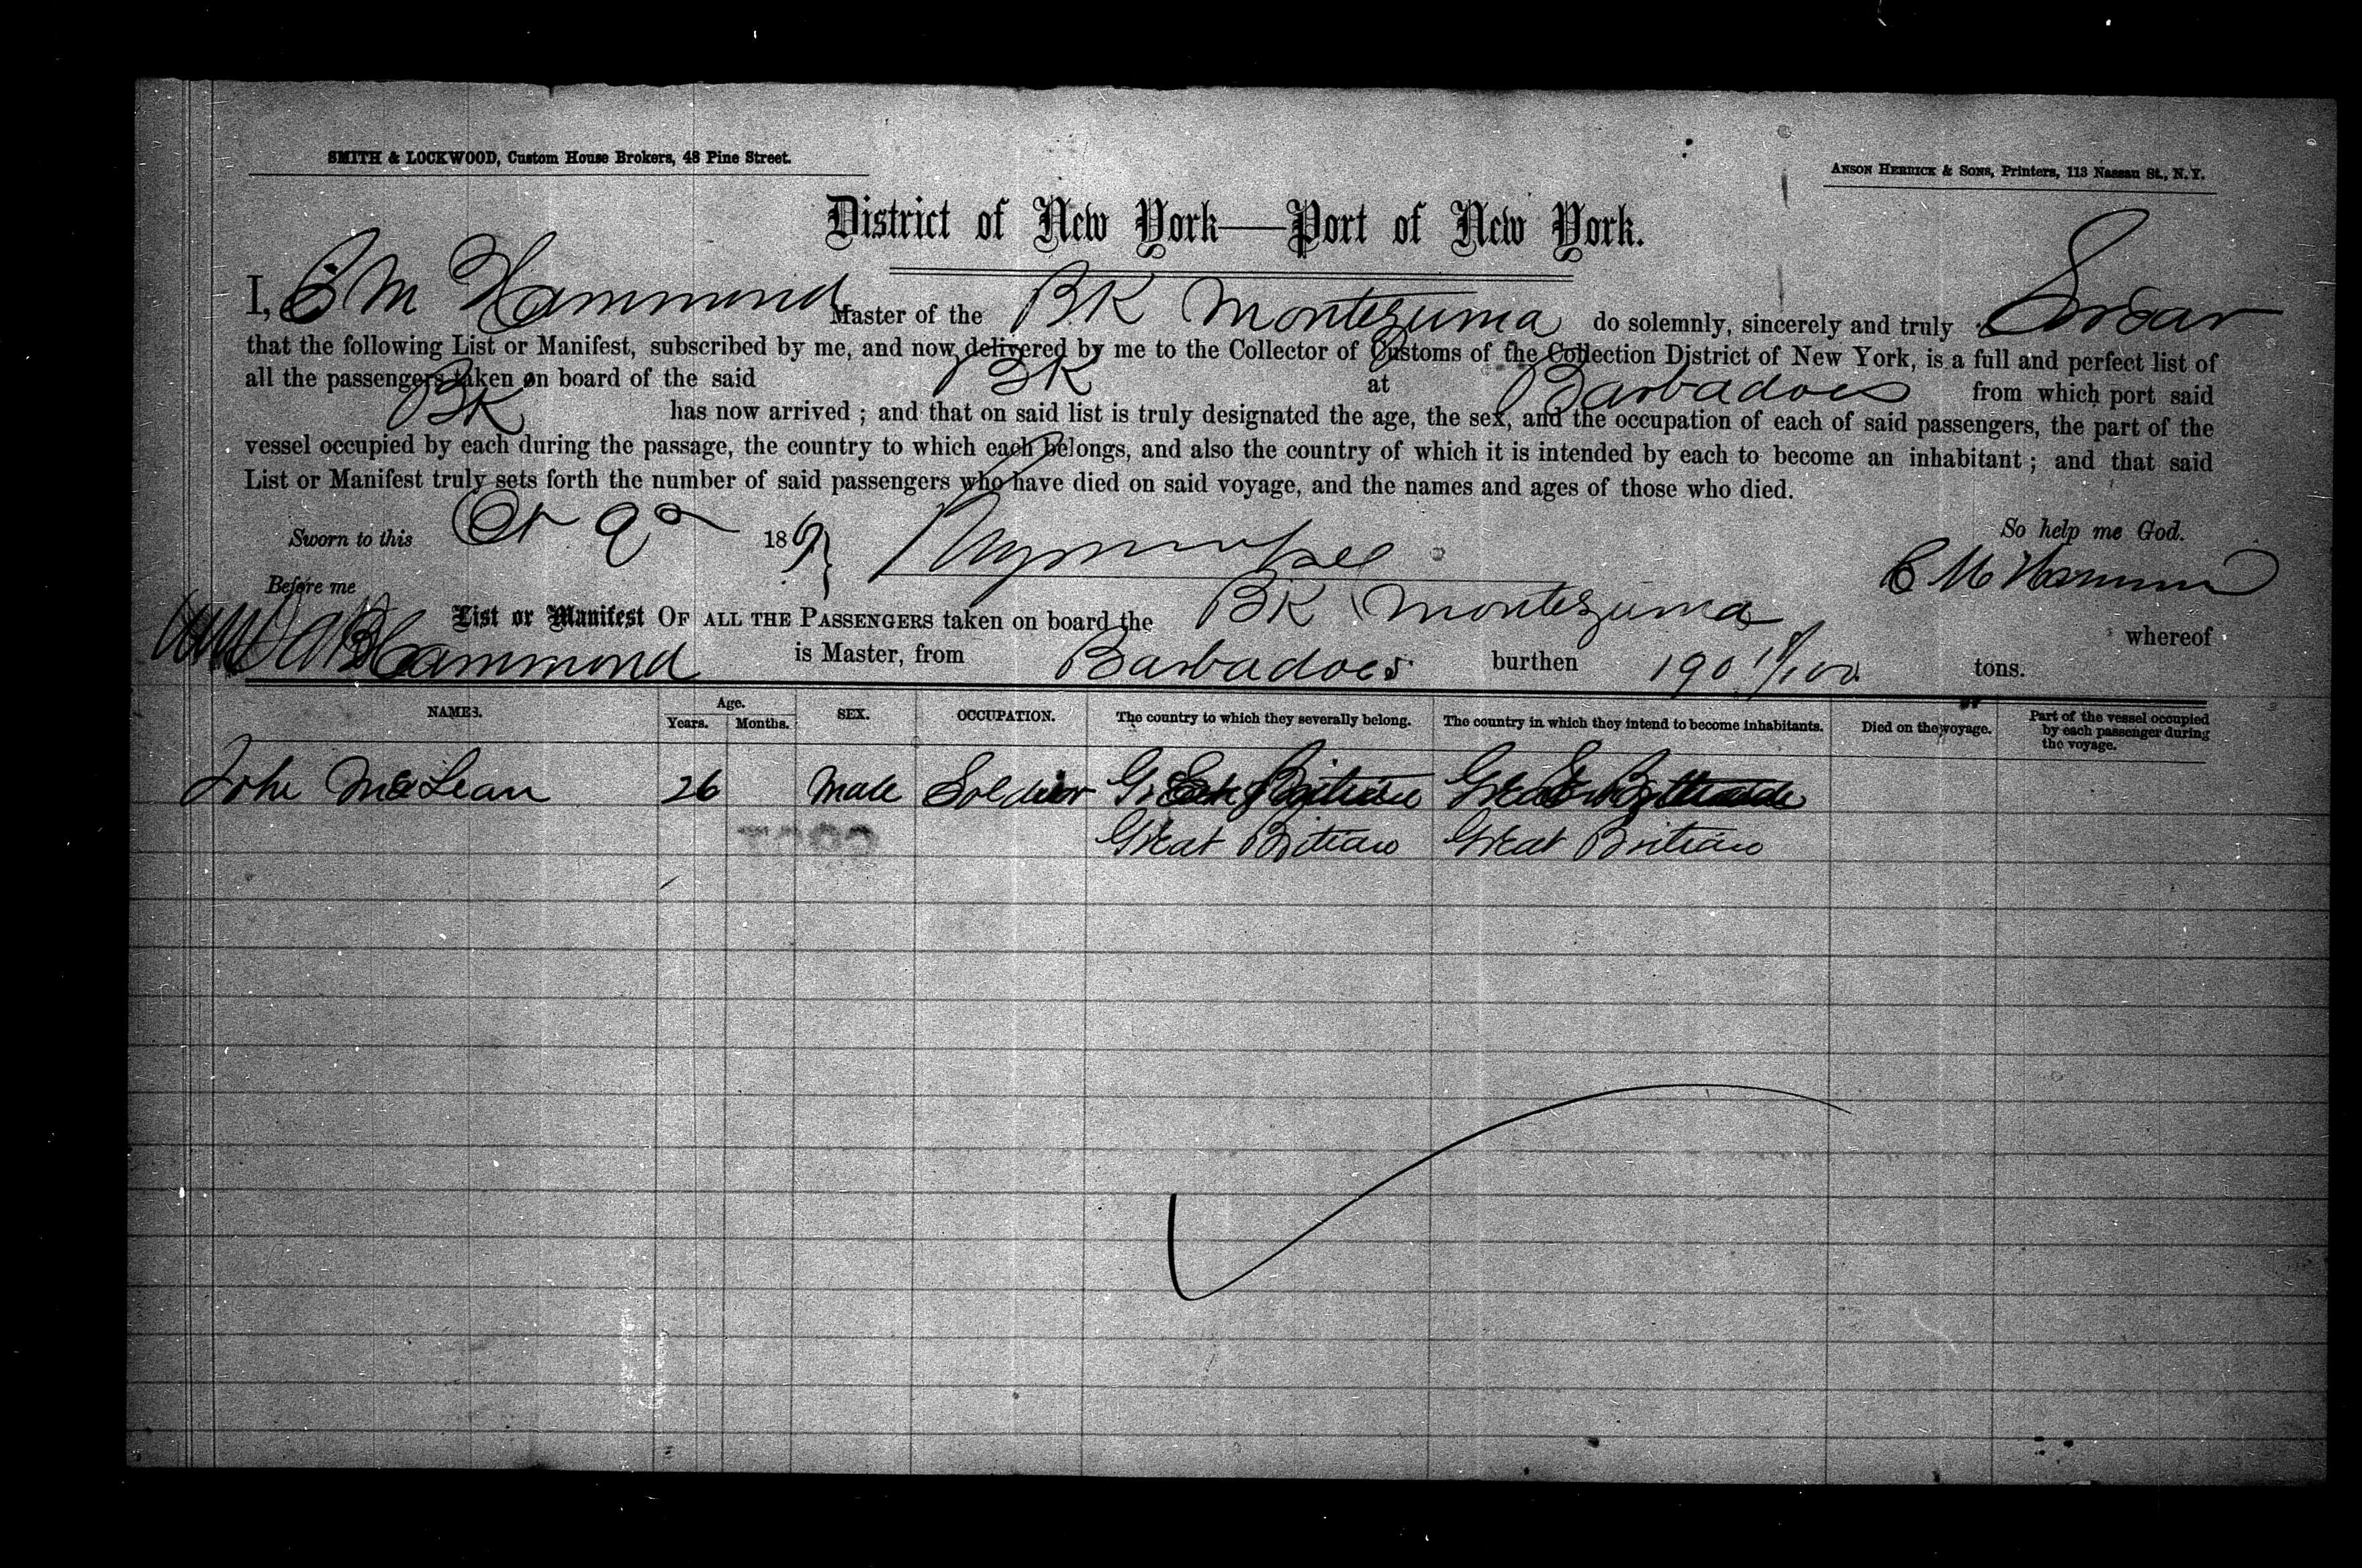 SMITH & LOCKWOOD, Custom House Brokers, 48 Pine Street.
ANSON HERRICK & SONS, Printers, 113 Nassau St., N.Y.
District of New York—Port of New York.
I, C M Hammond Master of the BK Montezuma do solemnly, sincerely and truly Swear
that the following List or Manifest, subscribed by me, and now delivered by me to the Collector of Customs of the Collection District of New York, is a full and perfect list of
all the passengers taken on board of the said BK at Barbadoes from which port said
BK has now arrived ; and that on said list is truly designated the age, the sex, and the occupation of each of said passengers, the part of the
vessel occupied by each during the passage, the country to which each belongs, and also the country of which it is intended by each to become an inhabitant ; and that said
List or Manifest truly sets forth the number of said passengers who have died on said voyage, and the names and ages of those who died.
Sworn to this 1869 So help me God.
Before me C M Hammond
List or Manifest OF ALL THE PASSENGERS taken on board the BK Montezuma whereof
Hammond is Master, from Barbadoes burthen 190 tons.
NAMES. Age. Years. Months. SEX. OCCUPATION. The country to which they severally belong. The country in which they intend to become inhabitants. Died on the voyage. Part of the vessel occupied by each passenger during the voyage.
John McLean 26 Male Soldier
Great Britian Great Britian